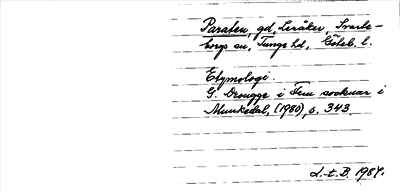 Paraten, gd, Leråker, Svarte-
borgs sn, Tunge hd, Göteb. l.
Etymologi.
G. Drougge i Fem socknar i
Munkedal, (1980), s. 343.
L-t. B. 1984.